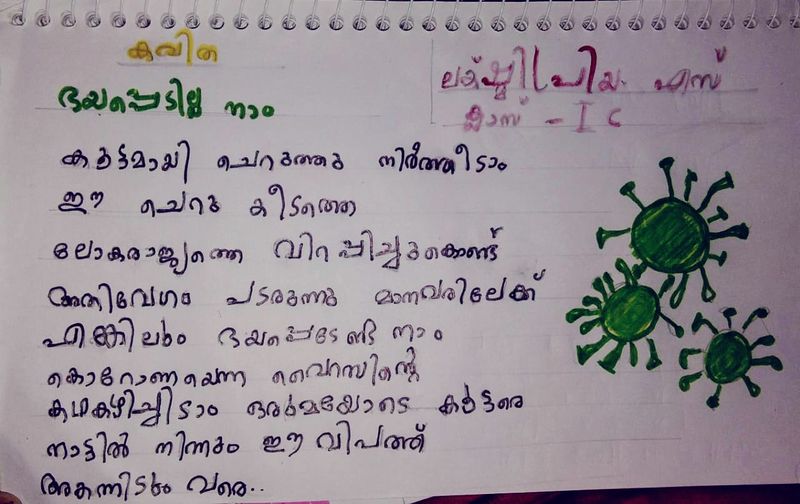 കവിത
ലക്ഷ്മിപ്രിയ എസ്
ക്ലാസ് - I C
ഭയപ്പെടില്ല നാം
കൂട്ടമായി ചെറുത്തു നിർത്തീടാം
ഈ ചെറു കീടത്തെ
ലോകരാജ്യത്തെ വിറപ്പിച്ചുകൊണ്ട്
അതിവേഗം പടരുന്നു മാനവരിലേക്ക്
എങ്കിലും ഭയപ്പെടേണ്ട നാം
കൊറോണയെന്ന വൈറസിന്റെ
കഥകഴിച്ചിടാം ഒരുമയോടെ കൂട്ടരെ
നാട്ടിൽ നിന്നും ഈ വിപത്ത്
അകന്നിടും വരെ..